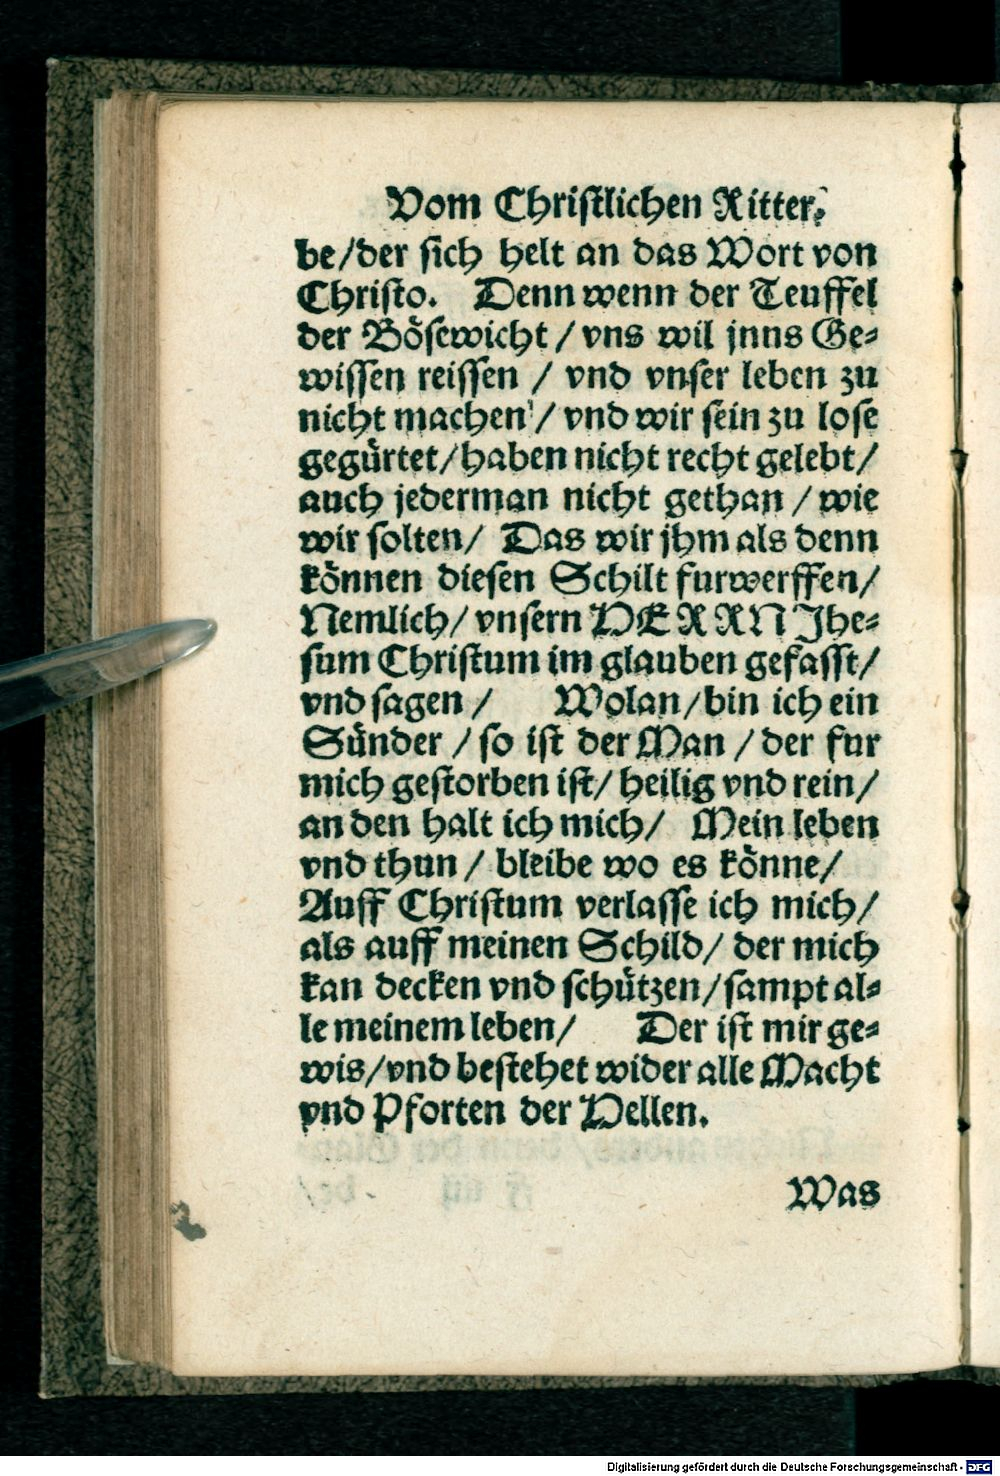 Vom Christlichen Ritter.
be/der sich helt an das Wort von
Christo. Denn wenn der Teuffel
der Bösewicht / vns wil jnns Ge⸗
wissen reissen / vnd vnser leben zu
nicht machen / vnd wir sein zu lose
gegürtet/haben nicht recht gelebt/
auch jederman nicht gethan / wie
wir solten/ Das wir jhm als denn
können diesen Schilt furwerffen/
Nemlich/ vnsern HERRN Jhe⸗
sum Christum im glauben gefasst/
vnd sagen / Wolan/bin ich ein
Sünder / so ist der Man / der fur
mich gestorben ist/ heilig vnd rein/
an den halt ich mich/ Mein leben
vnd thun / bleibe wo es könne/
Auff Christum verlasse ich mich/
als auff meinen Schild/ der mich
kan decken vnd schützen/sampt al⸗
le meinem leben/ Der ist mir ge⸗
wis/vnd bestehet wider alle Macht
vnd Pforten der Hellen.
Was
Digitalisierung gefördert durch die Deutsche Forschungsgemeinschaft - DFG